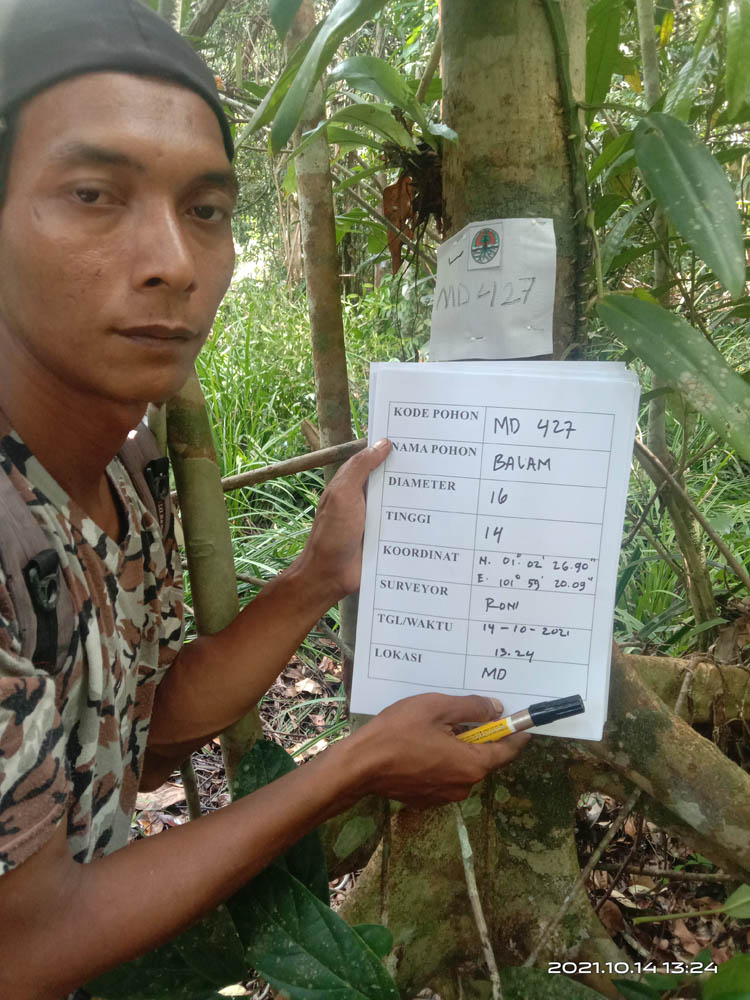 MD 427
KODE POHON MD 427
NAMA POHON BALAM
DIAMETER 16
TINGGI 14
KOORDINAT N. 01° 02' 26.90"
E. 101° 59' 20.09"
SURVEYOR RONI
TGL/WAKTU 14-10-2021
13.24
LOKASI MD
2021.10.14 13:24